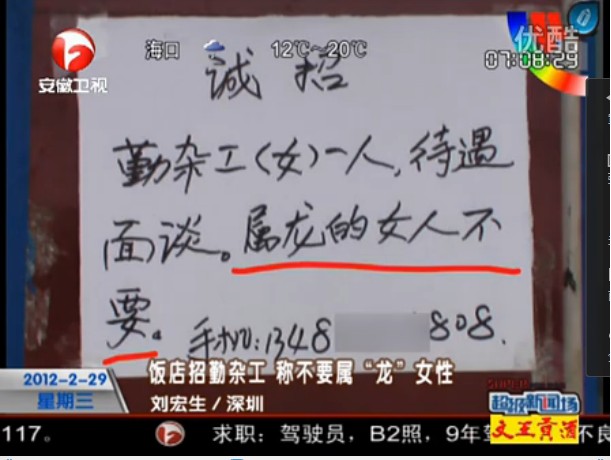 海口 12℃~20℃
优酷
07:08:29
安徽卫视
诚招
勤杂工(女)一人,待遇
面谈。属龙的女人不
要。
手机:1348 808.
饭店招勤杂工 称不要属“龙”女性
2012-2-29
星期三
刘宏生/深圳
超级新闻场
文王贡酒
117。 求职:驾驶员,B2照,9年驾 不良